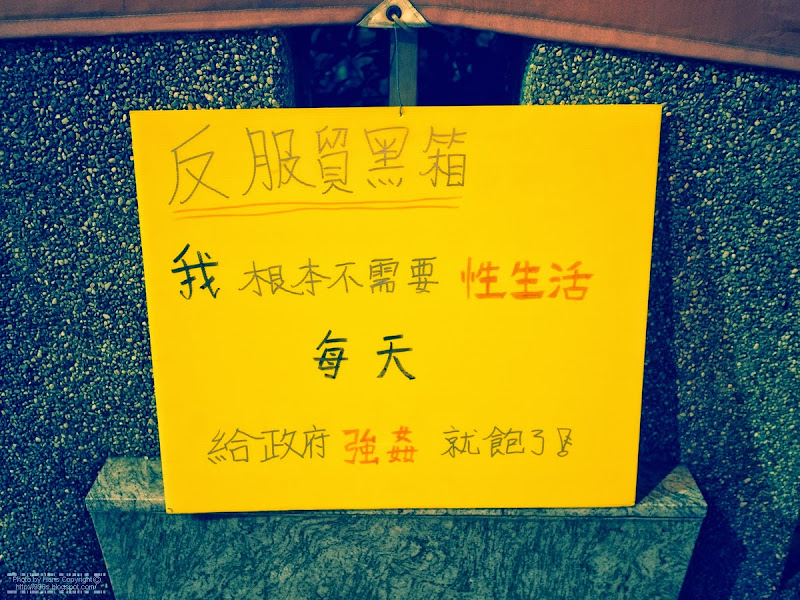 反服貿黑箱
我根本不需要性生活
每天
給政府強姦就飽了!
Photo by Hans Copyright ©
http://996s.blogspot.com/